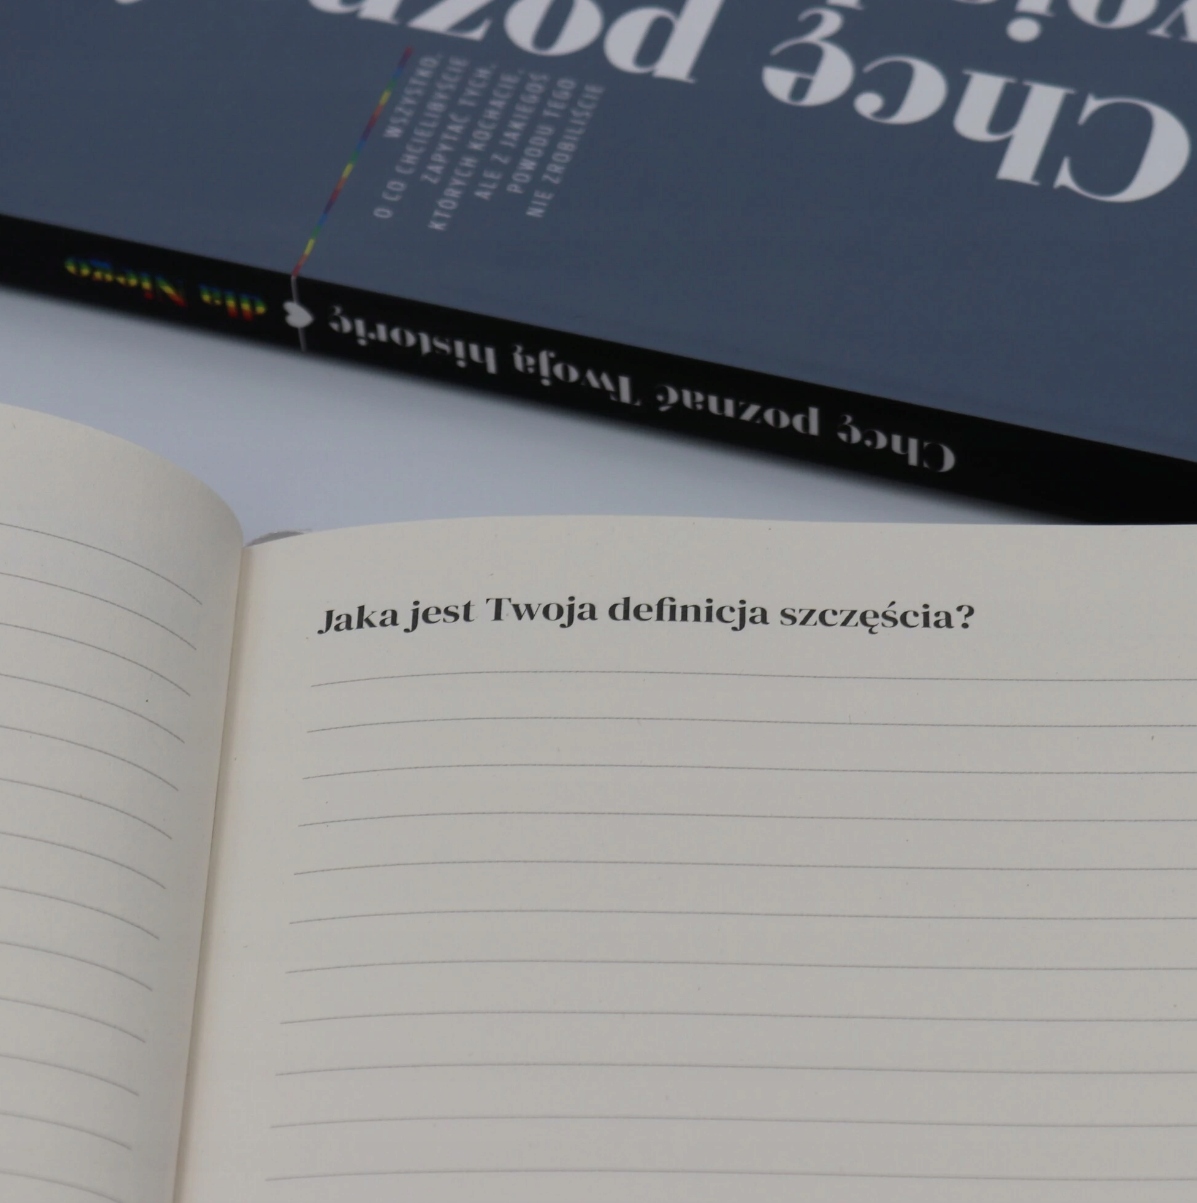 Chcę pozn
WSZYSTKO,
O CO CHCIELIBYŚCIE
ZAPYTAĆ TYCH,
KTÓRYCH KOCHACIE,
ALE Z JAKIEGOŚ
POWODU TEGO
NIE ZROBILIŚCIE
Chcę poznać Twoją historię
dla Niego
Jaka jest Twoja definicja szczęścia?